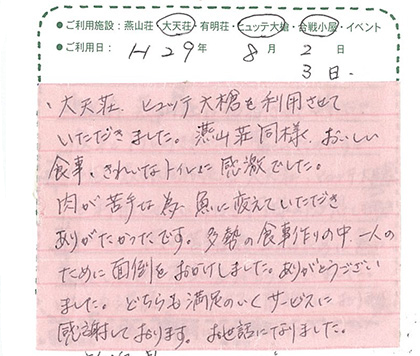 ●ご利用施設：燕山荘・大天荘・有明荘・ヒュッテ大槍・合戦小屋・イベント
●ご利用日：H29年 8月 2日
3日.
、大天荘、ヒュッテ大槍を利用させて
いただきました。燕山荘同様、おいしい
食事、きれいなトイレに感激でした。
肉が苦手な為、魚に変えていただき
ありがたかったです。多勢の食事作りの中、一人の
ために面倒をおかけしました。ありがとうござい
ました。どちらも満足のいくサービスに
感謝しております。お世話になりました。